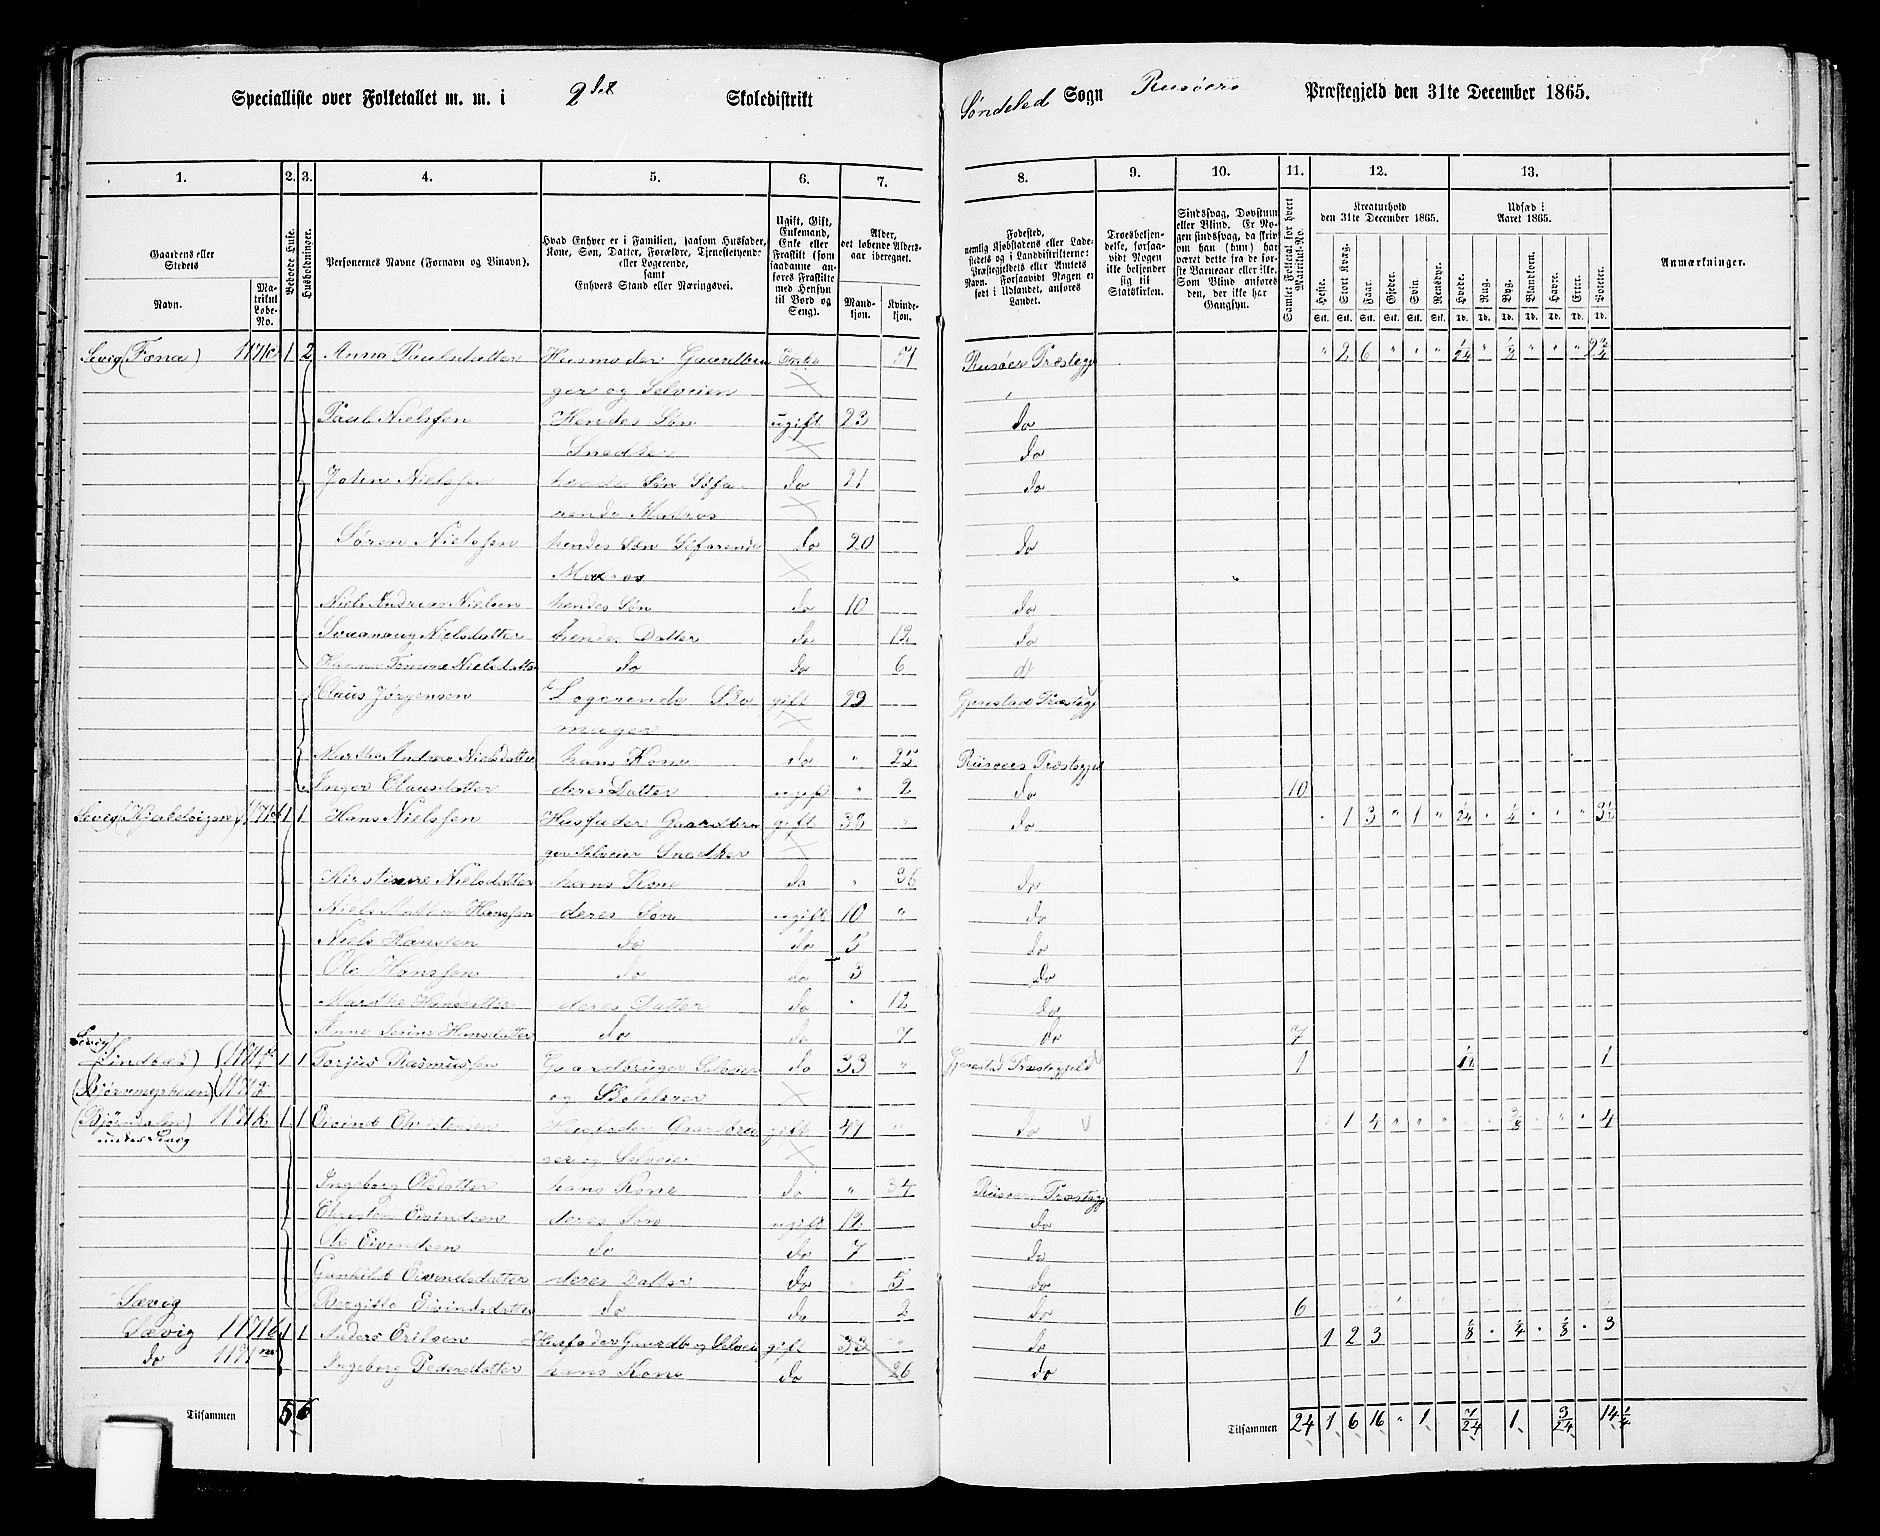 Specialliste over Folketallet m. m. i 2det Skoledistrikt Søndeled Sogn Præstegjeld den 31te December 1865.
1. 2. 3. 4. 5. 6. 7. 8. 9. 10. 11. 12. 13.
Gaardens eller Stedets
Navn.
Matrikul Løbe-No.
Beboede Huse.
Husholdninger.
Personernes Navne (Fornavn og Tilnavn).
Hvad Enhver er i Familien, saasom Husfader, Kone, Søn, Datter, Forældre, Tjenestetyende eller Logerende, samt Enhvers Stand eller Næringsvei.
Ugift, Gift, Enkemand, Enke eller Fraskilt (som saadanne anføres Fraskilte med Hensyn til Bord og Seng).
Alder, det løbende Alders-aar iberegnet.
Mand-kjøn. Kvinde-kjøn.
Fødested, nemlig Kjøbstadens eller Ladestedets og i Landdistrikterne: Præstegjeldets eller Amtets Navn. Forsaavidt Nogen er født i Udlandet, anføres Landet.
Troesbekjendelse, forsaavidt Nogen ikke bekjender sig til Statskirken.
Sindssvag, Døvstum eller Blind. Er Nogen sindssvag, da skrives om han (hun) har været dette fra de første Barneaar eller ikke. Som Blind ansføres den, der ikke har Gangsyn.
Samlet Folketal for hvert Matrikul-No.
Kreaturhold den 31te December 1865.
Heste. Stort Kvæg. Faar. Gjeder. Svin. Rensdyr.
Udsæd i Aaret 1865.
Hvede. Rug. Byg. Blandkorn. Havre. Erter. Poteter.
Anmærkninger.
1 2 Anna Paulsdatter Husmoder Gaardbru Enke 51 " 2 6 " " " 1/24 " 1/2 " " " 2 3/4
ger og Selveien
Paul Nielssen Hendes Søn ugift 23 do
Snedker do
John Nielssen hendes Søn Søfa do 21 do
rende Matros
Søren Nielssen hendes Søn Søfarende do 20 do
Matros
Niels Andreas Nielsen hendes Søn do 10 do
Nielsdatter hendes Datter do 12 do
Nielsdatter do do 6 do
Claus Jørgensen Logerende Sko gift 29 Gjerestad Præstegj
mager
Marthe Andrea Nielsdatter hans Kone do " 25 Risøers Præstegjeld
Inger Clausdatter deres Datter ugift " 2 do 10
1 1 Hans Nielssen Husfader Gaardbru gift 38 " do " 1 3 " 1 " 1/24 " 1/4 " " " 3 1/2
ger Selveier Snedker
Nielsdatter hans Kone do " 36 do
Niels Hanssen deres Søn ugift 10 " do
Niels Hanssen do do 5 do
Ole Hanssen do do 3 do
Marthe Hansdatter deres Datter do " 12 do
Anne Serine Hansdatter do do 7 do 7
Sevig
1 1 Torjus Rasmussen Gaardbruger Selveier do 33 " Gjerestad Præstegjeld 1 1
og
(Bjørndalen) 1 1 Eivind Christensen Husfader Gaardbru gift 47 " do " 1 4 " " " " " 3/8 " " " 4
under Sevig ger og Selveier
Ingeborg Olsdatter hans Kone do " 34 Risøers Præstegj
Christen Eivindsen deres Søn ugift 12 do
Ole Eivindsen do do 7 do
Gunhild Eivindsdatter deres Datter do 5 do
Sævig Eivindsdatter do do 2 do 6
Sævig 1 1 Anders Eriksen Husfader Gaardb og Selveier gift 33 " do 1 2 3 1/8 " 1/4 " 1/8 " 3
do Ingeborg Pedersdatter hans Kone do 26 do
Tilsammen 5 6 Tilsammen 24 1 6 16 " 1 7/24 1 3/24 14 1/4